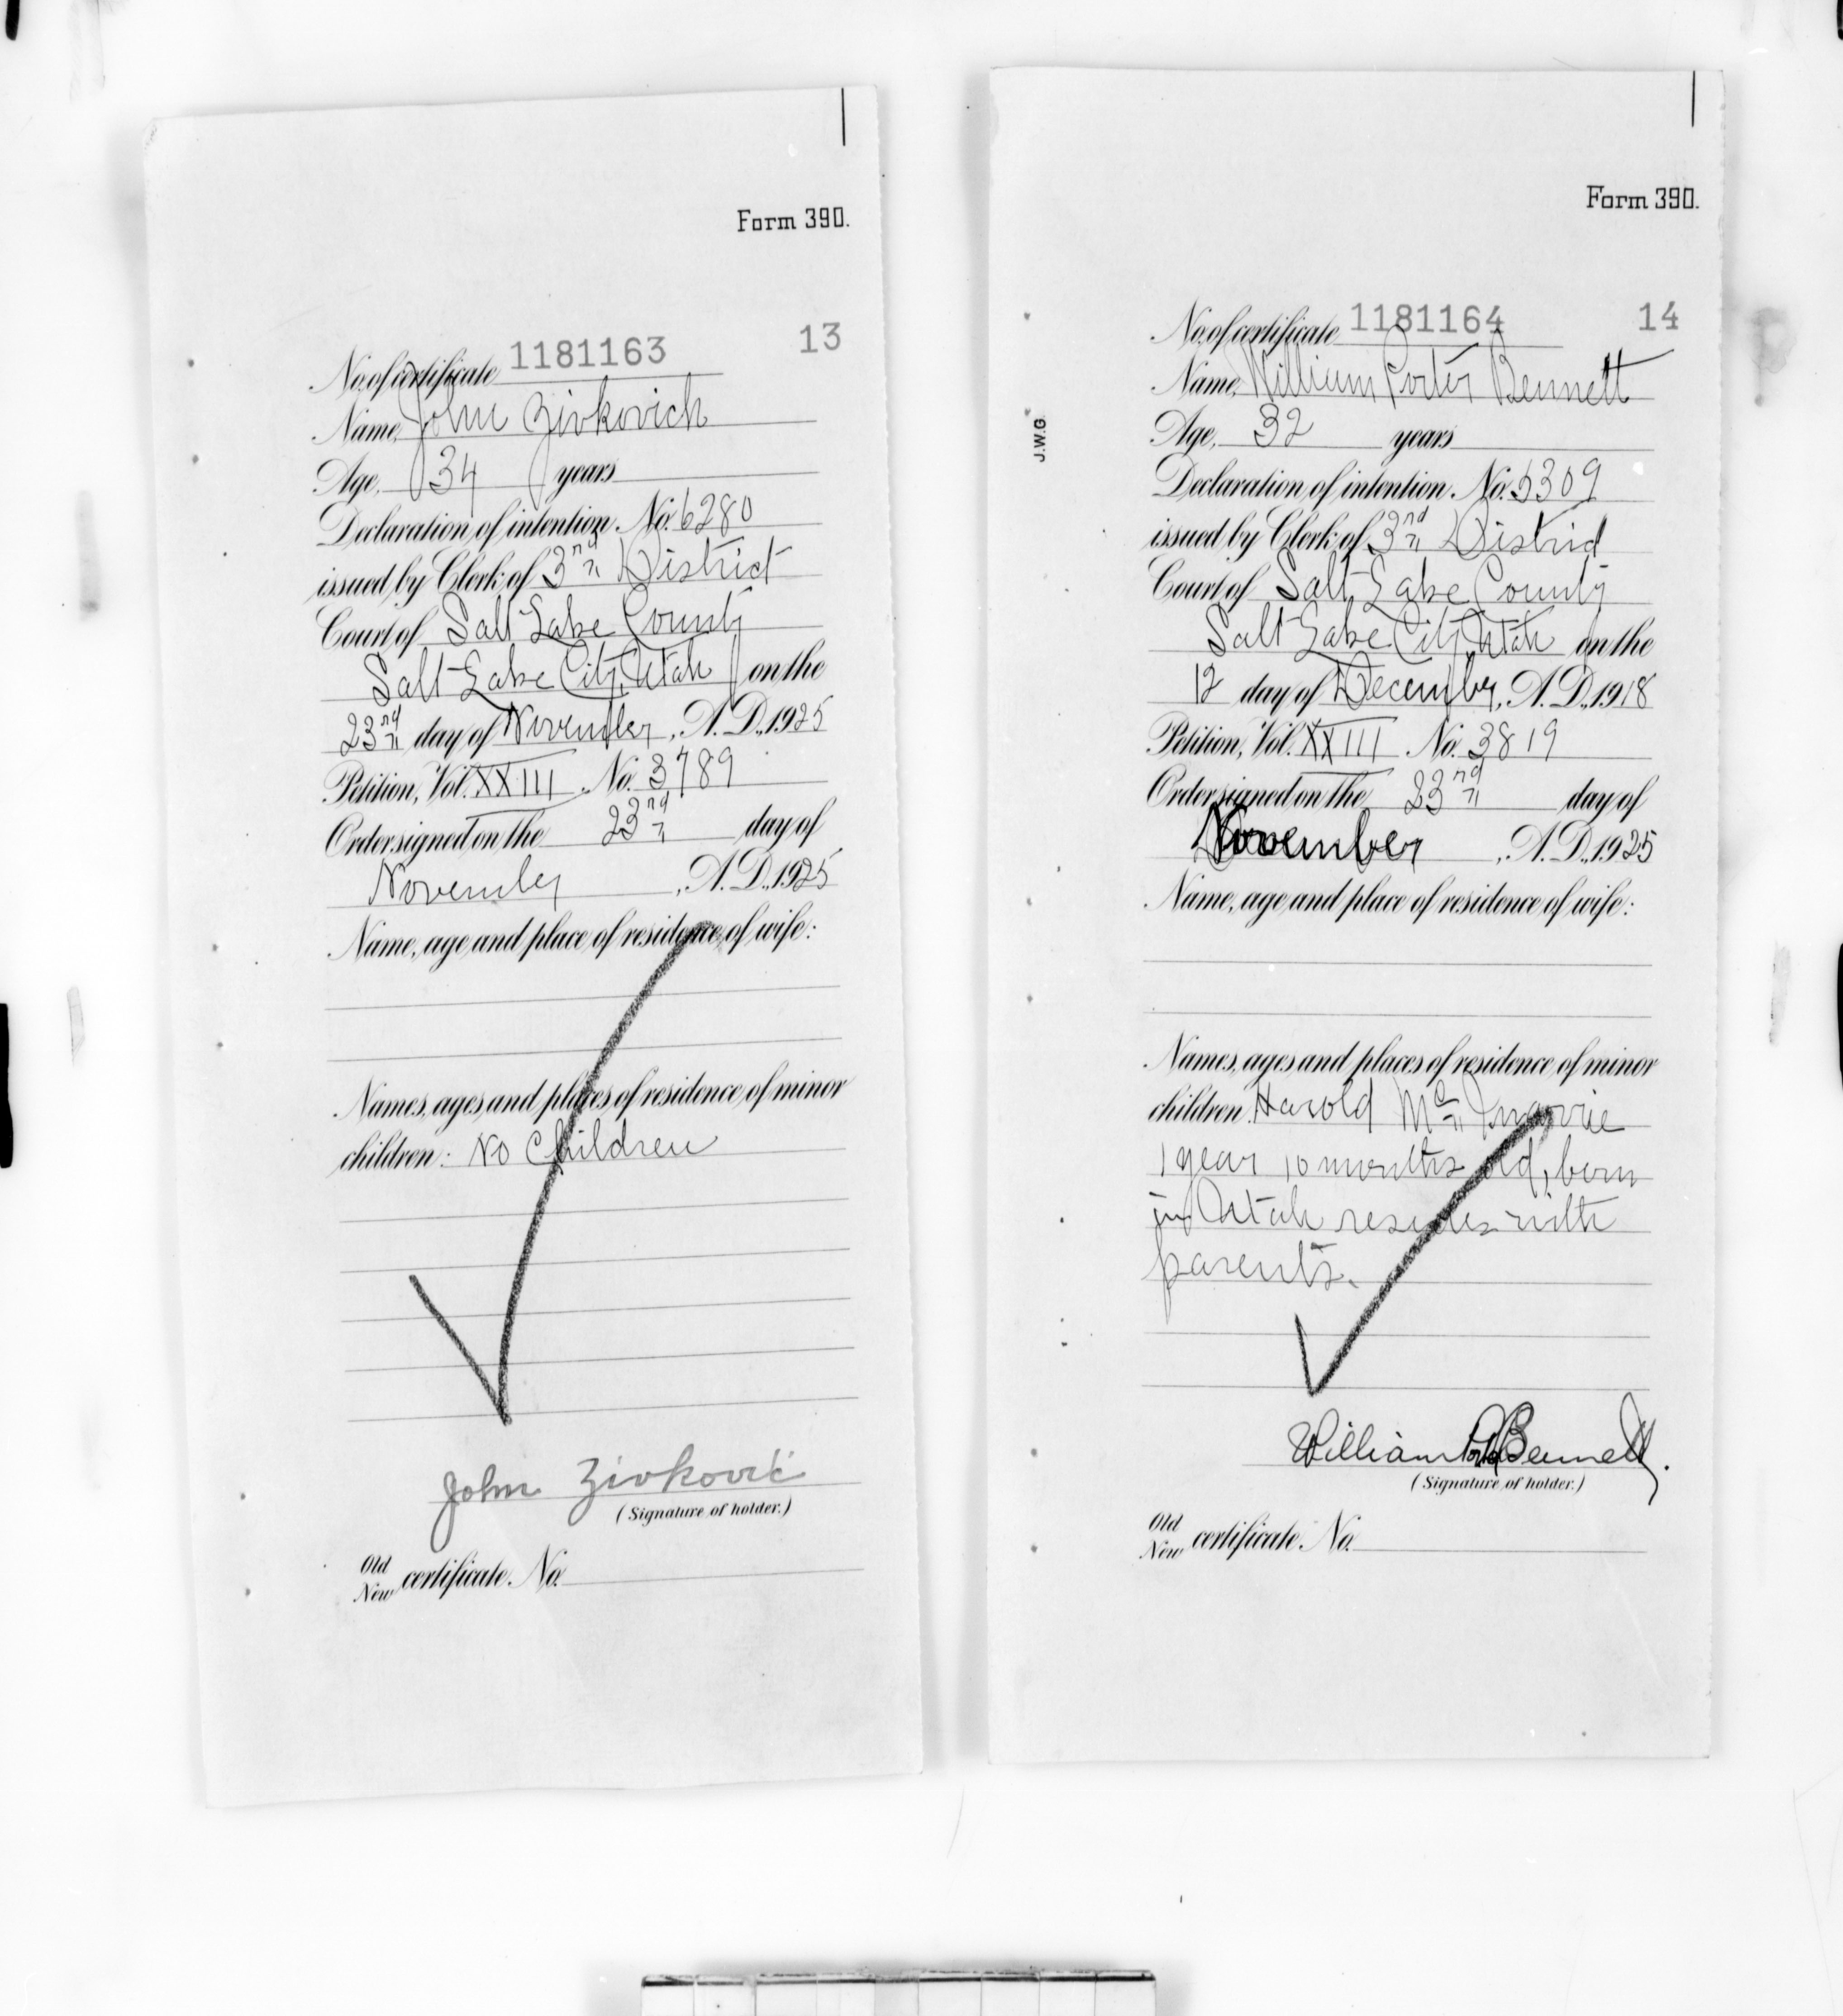 Form 390.
No. of certificate 1181163 13
Name, John Zivkovich
Age, 34 years
Declaration of intention. No. 6280
issued by Clerk of 3rd District
Court of Salt Lake County
Salt Lake City, Utah on the
23nd day of November, A. D., 1925
Petition, Vol. XXIII No. 3789
Order signed on the 23nd day of
November, A. D., 1925
Name, age and place of residence of wife:
Names, ages and places of residence of minor
children: No Children
John Zivković
(Signature of holder.)
Old
New certificate. No.
Form 390.
J.W.G.
No. of certificate 1181164 14
Name, William Porter Bennett
Age, 32 years
Declaration of intention. No. 5309
issued by Clerk of 3rd District
Court of Salt Lake County
Salt Lake City, Utah on the
12 day of December, A. D., 1918
Petition, Vol. XXIII No. 3819
Order signed on the 23nd day of
November, A. D., 1925
Name, age and place of residence of wife:
Names, ages and places of residence of minor
children. Harold
1 year 10 months old, born
in Utah resides with
parents.
William Porter Bennett.
(Signature of holder.)
Old
New certificate. No.